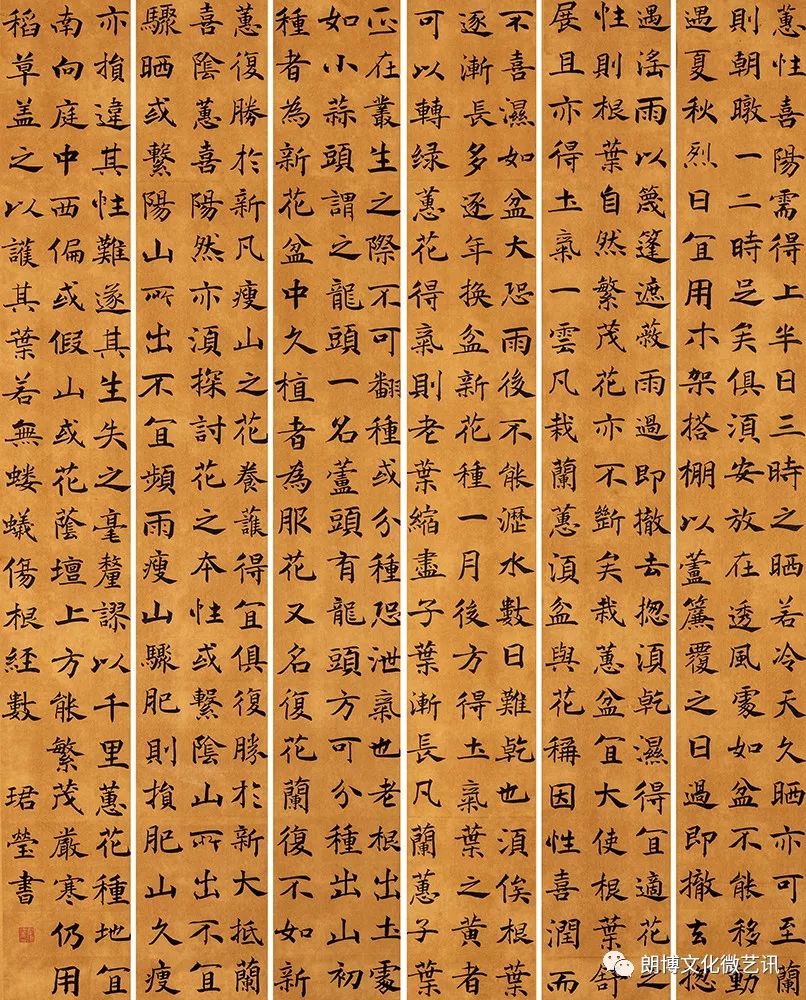 蕙性喜陽需得上半日三時之晒若冷天久晒亦可至蘭
則朝暾一二時足矣俱須安放在透風處如盆不能移動
遇夏秋烈日宜用木架搭棚以蘆簾覆之日過即撤去揔
遇滛雨以篾篷遮蔽雨過即撤去揔須乾濕得宜適花之
性則根葉自然繁茂花亦不斷矣栽蕙盆宜大使根葉舒
展且亦得土氣一雲凡栽蘭蕙須盆與花稱因性喜潤而
不喜濕如盆大恐雨後不能瀝水數日難乾也須俟根葉
逐漸長多逐年換盆新花種一月後方得土氣葉之黃者
可以轉绿蕙花得氣則老葉縮盡子葉漸長凡蘭蕙子葉
正在叢生之際不可翻種或分種恐泄氣也老根出土處
如小蒜頭謂之龍頭一名蘆頭有龍頭方可分種出山初
種者為新花盆中久植者為服花又名復花蘭復不如新
蕙復勝於新凡瘦山之花養護得宜俱復勝於新大抵蘭
喜陰蕙喜陽然亦須探討花之本性或繫陰山所出不宜
驟晒或繫陽山所出不宜頻雨瘦山驟肥則損肥山久瘦
亦損違其性難遂其生失之毫釐謬以千里蕙花種地宜
南向庭中西偏或假山或花蔭壇上方能繁茂嚴寒仍用
稻草盖之以護其葉若無螻蟻傷根經數
珺瑩書
朗博文化微艺讯